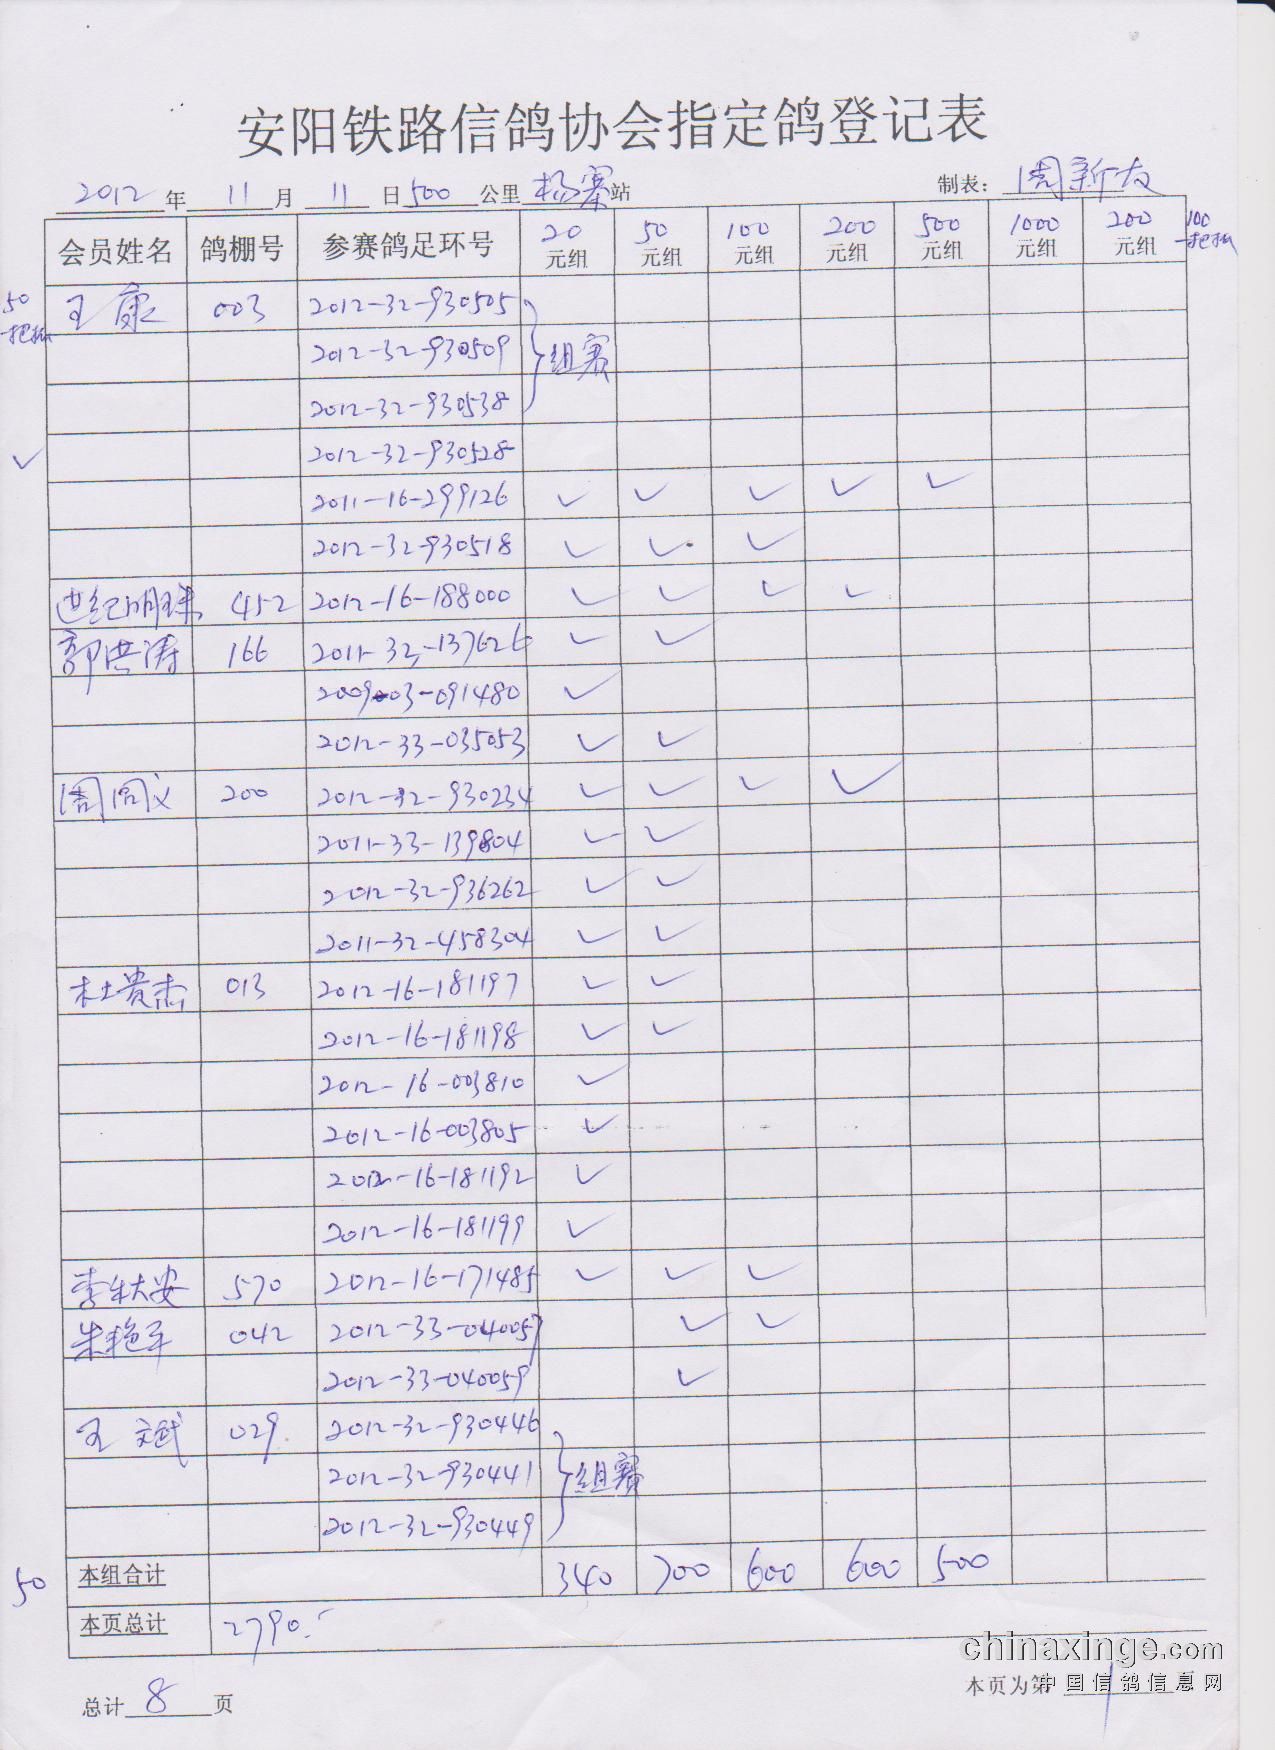 安阳铁路信鸽协会指定鸽登记表
2012 年 11 月 11 日 500 公里 杨寨 站 制表: 周新友
会员姓名 鸽棚号 参赛鸽足环号 20元组 50元组 100元组 200元组 500元组 1000元组 200元组 100
50 王康 003 2012-32-930505
2012-32-930509 组赛
2012-32-930538
✓ 2012-32-930528
2011-16-299126 ✓ ✓ ✓ ✓ ✓
2012-32-930518 ✓ ✓ ✓
452 2012-16-188000 ✓ ✓ ✓ ✓
郭洪涛 166 2011-32-137626 ✓ ✓
2009-03-091480 ✓
2012-33-035053 ✓ ✓
周同义 200 2012-32-930234 ✓ ✓ ✓ ✓
2011-33-139804 ✓ ✓
2012-32-936262 ✓ ✓
2011-32-458304 ✓ ✓
杜贵杰 013 2012-16-181197 ✓ ✓
2012-16-181198 ✓ ✓
2012-16-003810 ✓
2012-16-003805 ✓
2012-16-181192 ✓
2012-16-181199 ✓
570 2012-16-171485 ✓ ✓ ✓
朱艳军 042 2012-33-040057 ✓ ✓
2012-33-040059 ✓
王斌 029 2012-32-930446
2012-32-930441 组赛
2012-32-930449
50 本组合计 340 700 600 600 500
本页总计 2790.-
chinaxinge.com
本页为第 1
中国信鸽信息网
总计 8 页